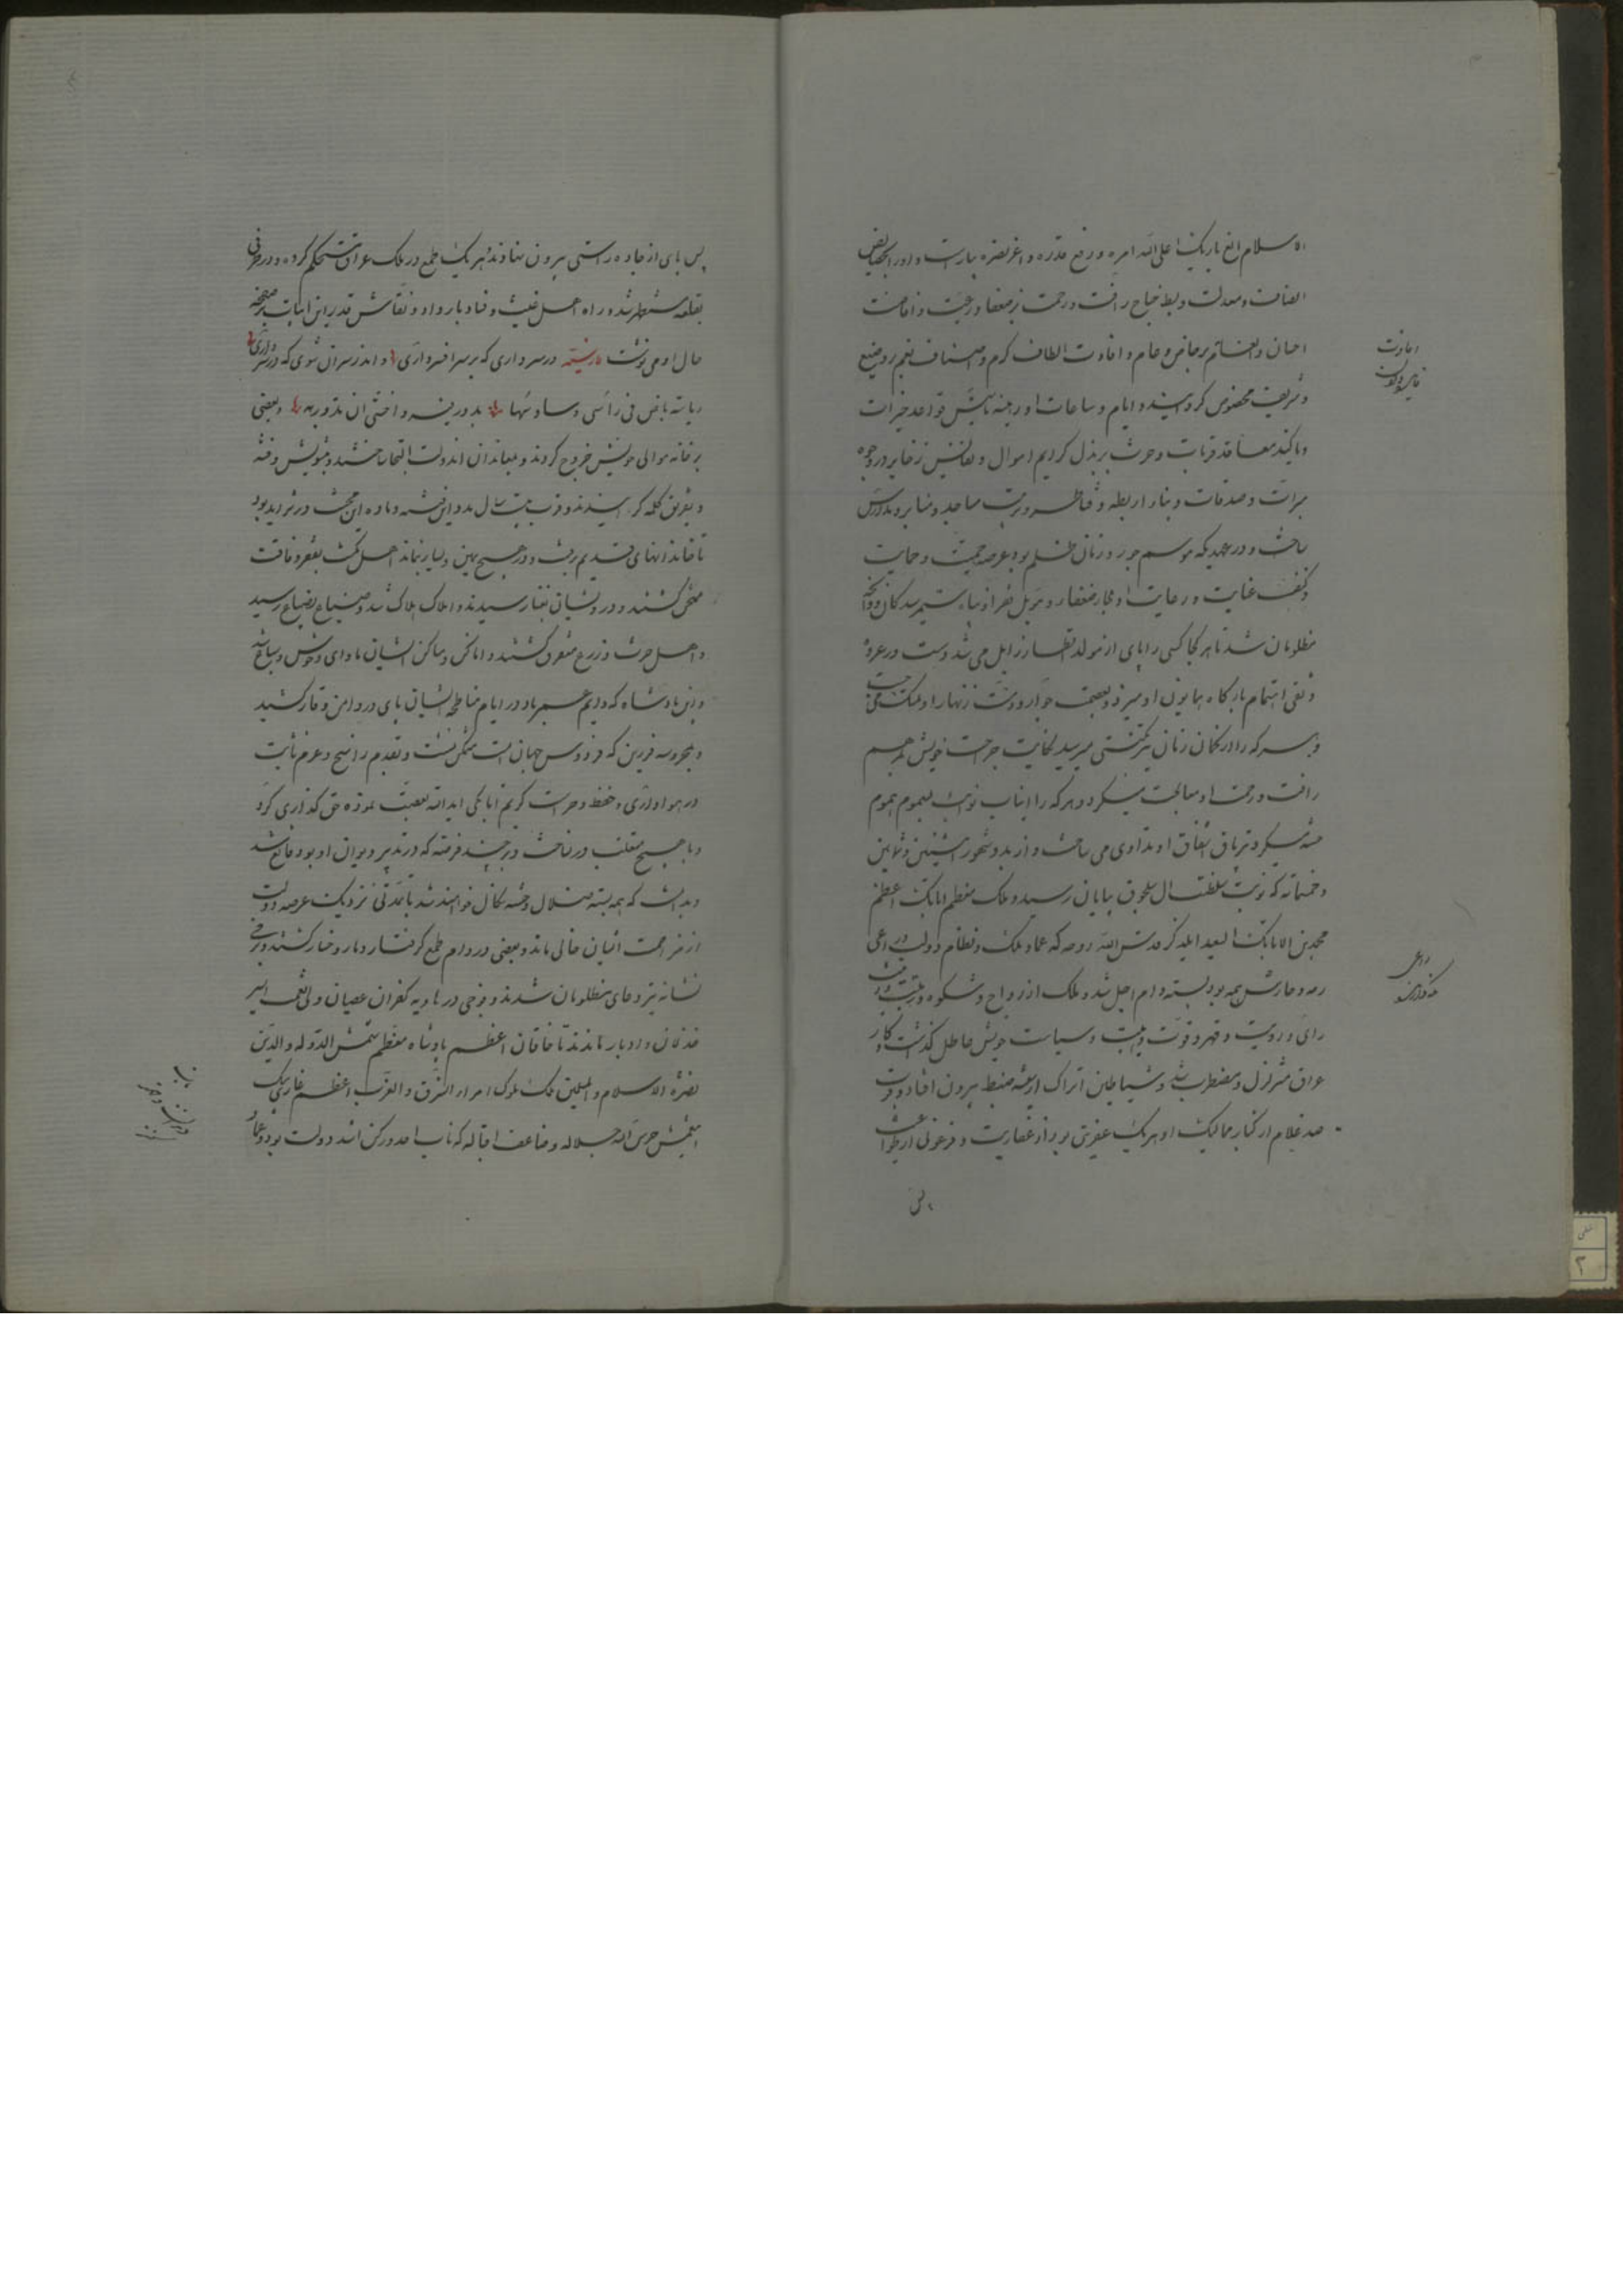 الاسلام الغ باربک اعلی الله امره و رفع قدره و اعز نصره بیاراست و او را بخصایص
انصاف و معدلت و بسط جناح رافت و رحمت بر ضعفا و رعیت و افاضت
احسان و انعام بر خاص و عام و افادت الطاف کرم و اصناف نعم بر وضیع
و شریف مخصوص کردانید و ایام و ساعات او رهینه تاسیس قواعد خیرات
و تاکید معاقد قربات و حرث بر بذل کرایم اموال و نفایس ذخایر در وجوه
مبرات و صدقات و بناء اربطه و قناطر و مرمت مساجد و منابر و مدارس
ساخت و در عهدیکه موسم جور و زمان ظلم بود عرصه حمیت و حمایت
و کنف عنایت و رعایت او مجار ضعفا و موئل فقرا و پناه ستم رسیدکان و ملجاء
مظلومان شد تا هر کجا کسی را پای از مولد زایل می شد دست در عروه
وثقی اهتمام بارکاه همایون او میزد و بعصمت جوار و ذمت زنهار او تمسک می جست
و هر که را در کمان زمان تیر نکبتی میرسید جراحت خویش بمرهم
رافت و رحمت او معالجت میکرد و هر که را انیاب نوایب بسموم هموم
خسته میکرد بتریاق اشفاق او تداوی می ساخت و از بدو شهور اثنین و ثمانین
و خمسمائه که نوبت سلطنت ال سلجوق بپایان رسید و ملک معظم اتابک اعظم
محمد بن الاتابک السعید ایلدکز قدس الله روحه که عماد ملک و نظام دولت و راعی
رمه و حارس همه بود بسته دام اجل شد و ملک از رواج و شکوه و
رای و رویت و قهر و قوت و هیبت و سیاست خویش عاطل گذاشت کار
عراق متزلزل و مضطرب شد و شیاطین اتراک از شیشه ضبط بیرون افتاد و قرب
صد غلام از کبار ممالیک او هر یک عفریتی بود از عفاریت و فرعونی از طواغیت
پس
پس پای از جاده راستی بیرون نهادند و هر یک طمع در ملک عراق مستحکم کرده و در طرفی
بقلعه مستظهر شد و راه اهل عیث و فساد باز داد و نقاش قدر این ابیات بر صفحه
حال او می نوشت در سر داری که بر سر افسر داری و اندر سر ان شوی که در سر داری
ریاسة باض فی راسی وساوسها یدور فیه و اخشی ان یدور به و بعضی
بر خانه موالی خویش خروج کردند و بمعاندان ان دولت التجا ساختند و بتشویش و فتنه
و تفریق کلمه کرائیدند و قرب بیست سال مدد این فتنه و ماده این محنت در تزاید بود
تا خاندانهای قدیم برفت و در جمیع یمین و یسار نماند اهل مکنت بفقر و فاقت
ممتحن گشتند و درویشان بفنا رسیدند و املاک هلاک شد و ضیاع بضیاع رسید
و اهل حرث و زرع متفرق گشتند و اماکن و مساکن ایشان ماوای وحوش و سباع شد
و این پادشاه که دایم عمر باد در ایام مناطحه ایشان پای در دامن وقار کشید
و بمحروسه فرزین که فردوس جهان است متمکن نشست و بقدم راسخ و عزم ثابت
در هواداری و حفظ و حراست کریم اتابکی ایدالله بعصبته نموده حق گذاری کرد
و با هیچ متغلب در نساخت و بر چند فرضه که در تدبیر دیوان او بود قانع شد
و بدانست که همه بسته ضلال و خسته نکال خواهند شد تا بمدتی نزدیک عرصه دولت
از مزاحمت ایشان خالی ماند و بعضی در دام طمع گرفتار دمار و خسار گشتند و برخی
نشانه تیر دعای مظلومان شدند و فوجی در هاویه کفران عصیان ولی نعمت اسیر
خذلان و ادبار ماندند تا خاقان اعظم پادشاه معظم شمس الدوله و الدین
نصرة الاسلام و المسلمین ملک ملوک امراء الشرق و الغرب اعظم غازی بک
ایتغمش حرس الله جلاله و ضاعف اقباله که ناب احد و رکن اشد دولت بود و عماد